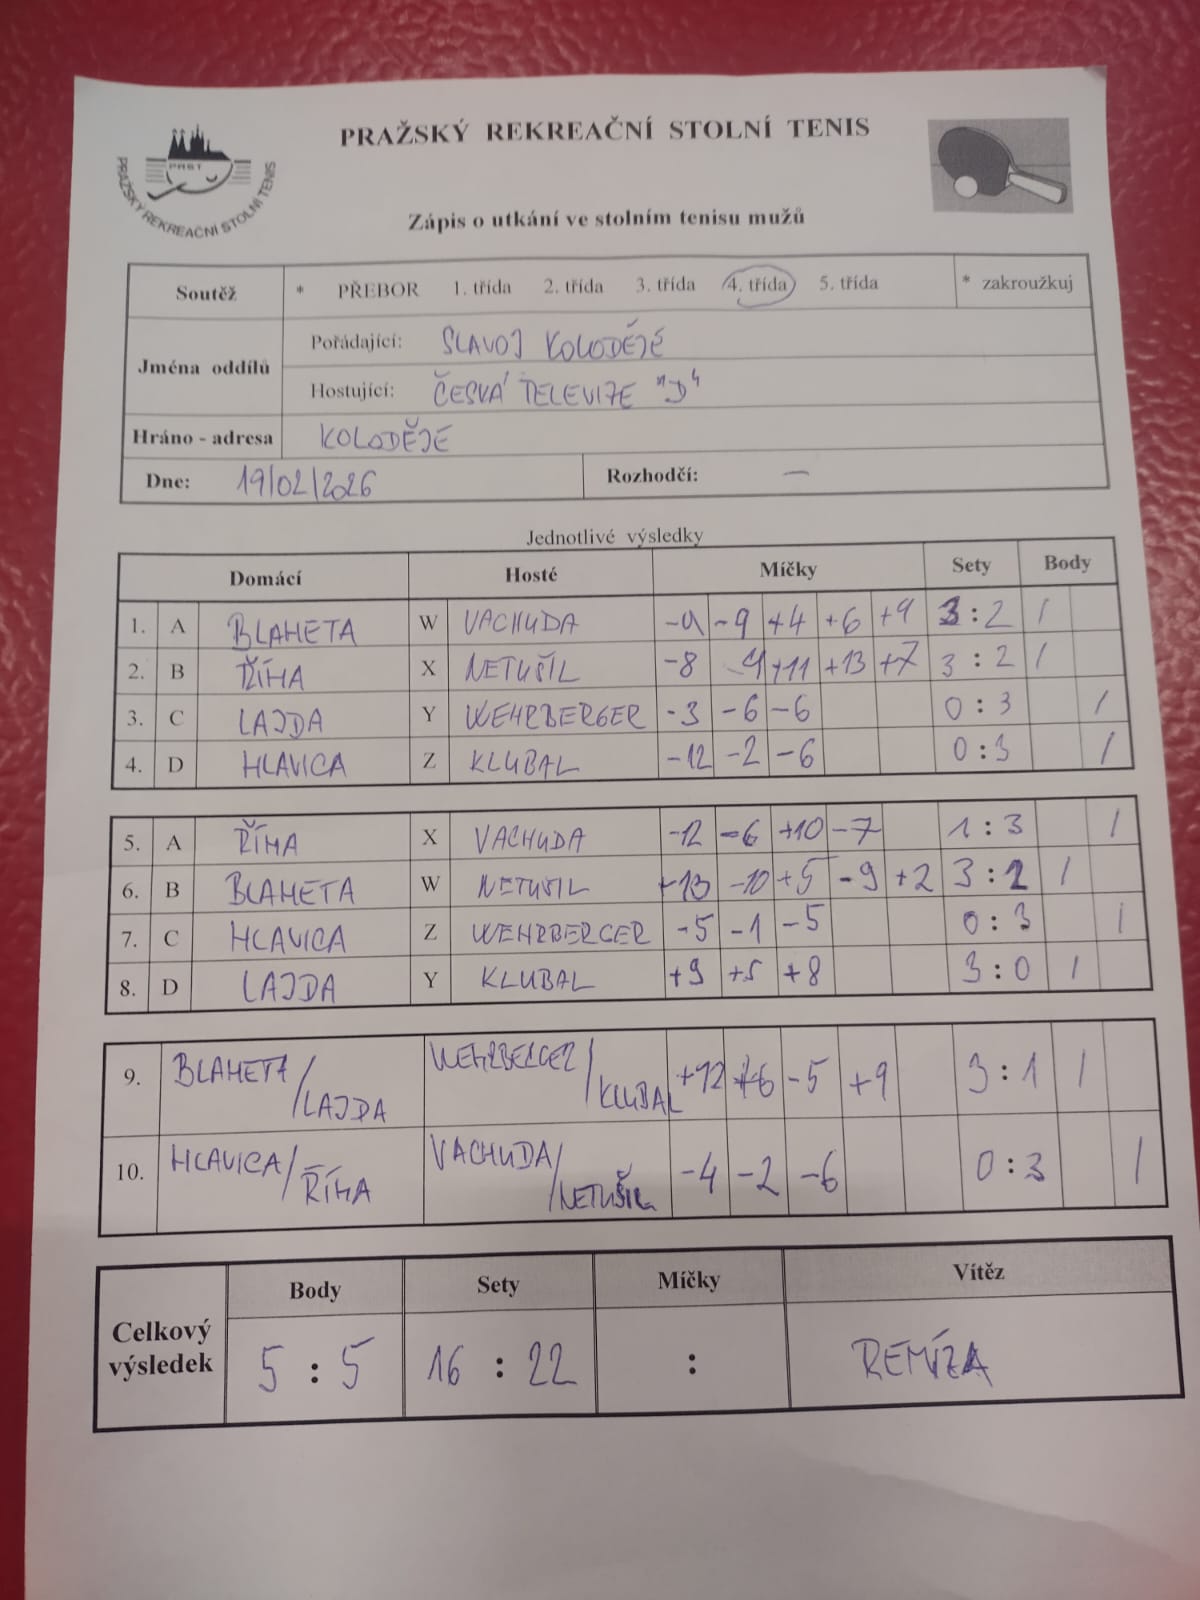 PRAŽSKÝ REKREAČNÍ STOLNÍ TENIS
PRST
PRAŽSKÝ REKREAČNÍ STOLNÍ TENIS
Zápis o utkání ve stolním tenisu mužů
Soutěž * PŘEBOR 1. třída 2. třída 3. třída 4. třída 5. třída * zakroužkuj
Jména oddílů
Pořádající: SLAVOJ KOLODĚJE
Hostující: ČESKÁ TELEVIZE "D"
Hráno - adresa KOLODĚJE
Dne: 19/02/2026 Rozhodčí: —
Jednotlivé výsledky
Domácí Hosté Míčky Sety Body
1. A BLAHETA W VACHUDA -9 -9 +4 +6 +9 3 : 2 /
2. B ŘÍHA X NETUŠIL -8 +11 +13 +7 3 : 2 /
3. C LAJDA Y WEHRBERGER -3 -6 -6 0 : 3 /
4. D HLAVICA Z KLUBAL -12 -2 -6 0 : 3 /
5. A ŘÍHA X VACHUDA -12 -6 +10 -7 1 : 3 /
6. B BLAHETA W NETUŠIL +13 -10 +5 -9 +2 3 : 2 /
7. C HLAVICA Z WEHRBERGER -5 -1 -5 0 : 3 /
8. D LAJDA Y KLUBAL +9 +5 +8 3 : 0 /
9. BLAHETA/LAJDA WEHRBERGER/KLUBAL +12 +6 -5 +9 3 : 1 /
10. HLAVICA/ŘÍHA VACHUDA/NETUŠIL -4 -2 -6 0 : 3 /
Body Sety Míčky Vítěz
Celkový výsledek 5 : 5 16 : 22 : REMÍZA